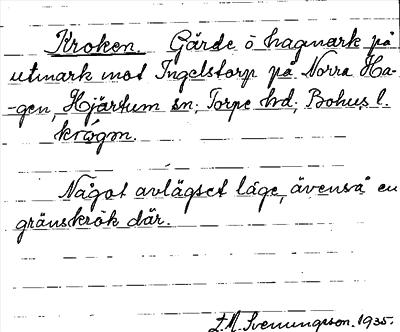 Kroken. Gärde o hagmark på
utmark mot Ingelstorp på Norra Ha-
-gen, Hjärtum sn; Torpe hd; Bohus l.
Något avlägset läge, ävenså en
gränskrok där.
L.M. Svenungsson. 1935.